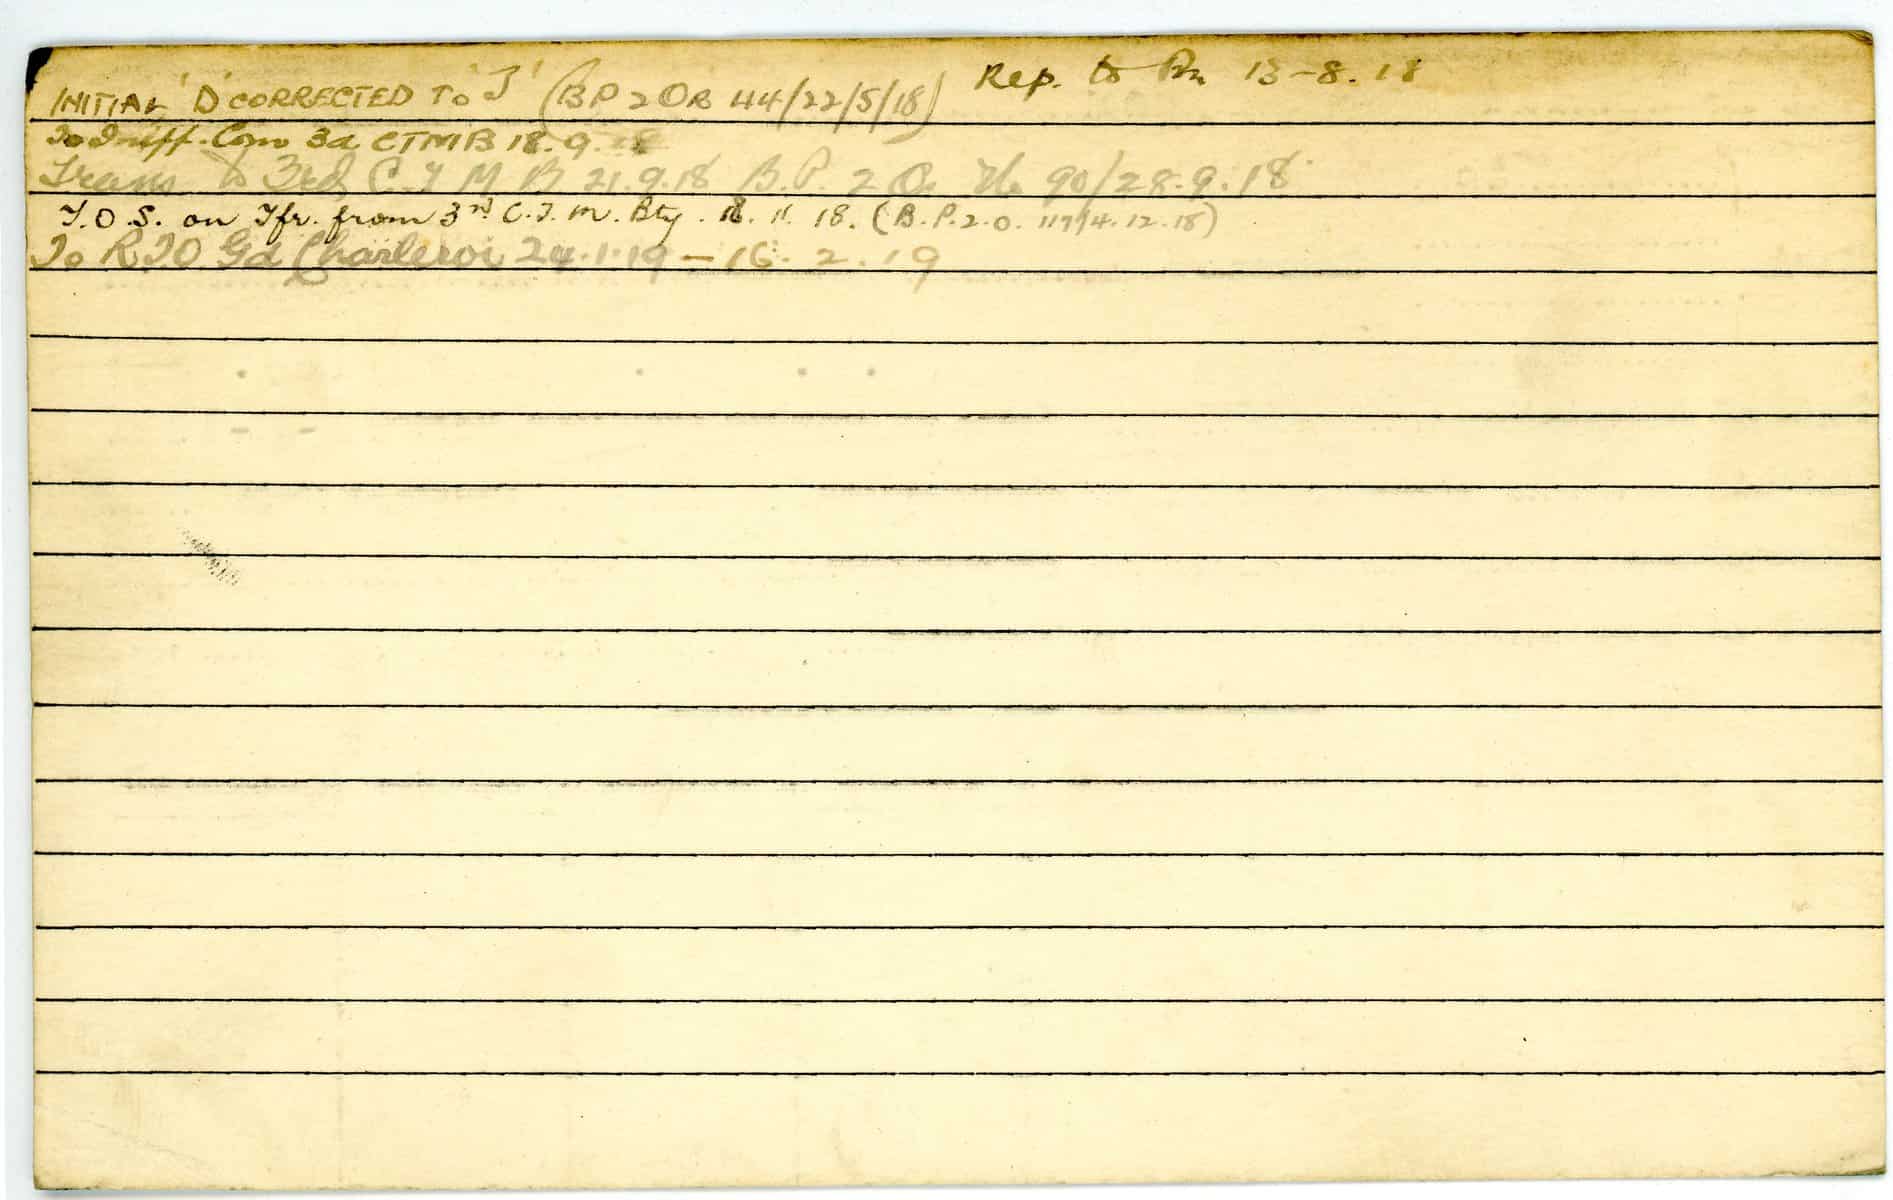 INITIAL 'D' CORRECTED TO 'J' (BP2OR 44/22/5/18) Rep. to Bn 13-8.18
To Com 3a CTMB 18.9.18
Trans to 3rd C.T.M.B 21.9.18 B.P. 2 O. 90/28.9.18
T.O.S. on Tfr. from 3rd C.T.M. Bty. 18.11.18. (B.P.2.O. 117/4.12.18)
To RTO Gd Charleroi 24.1.19 – 16.2.19